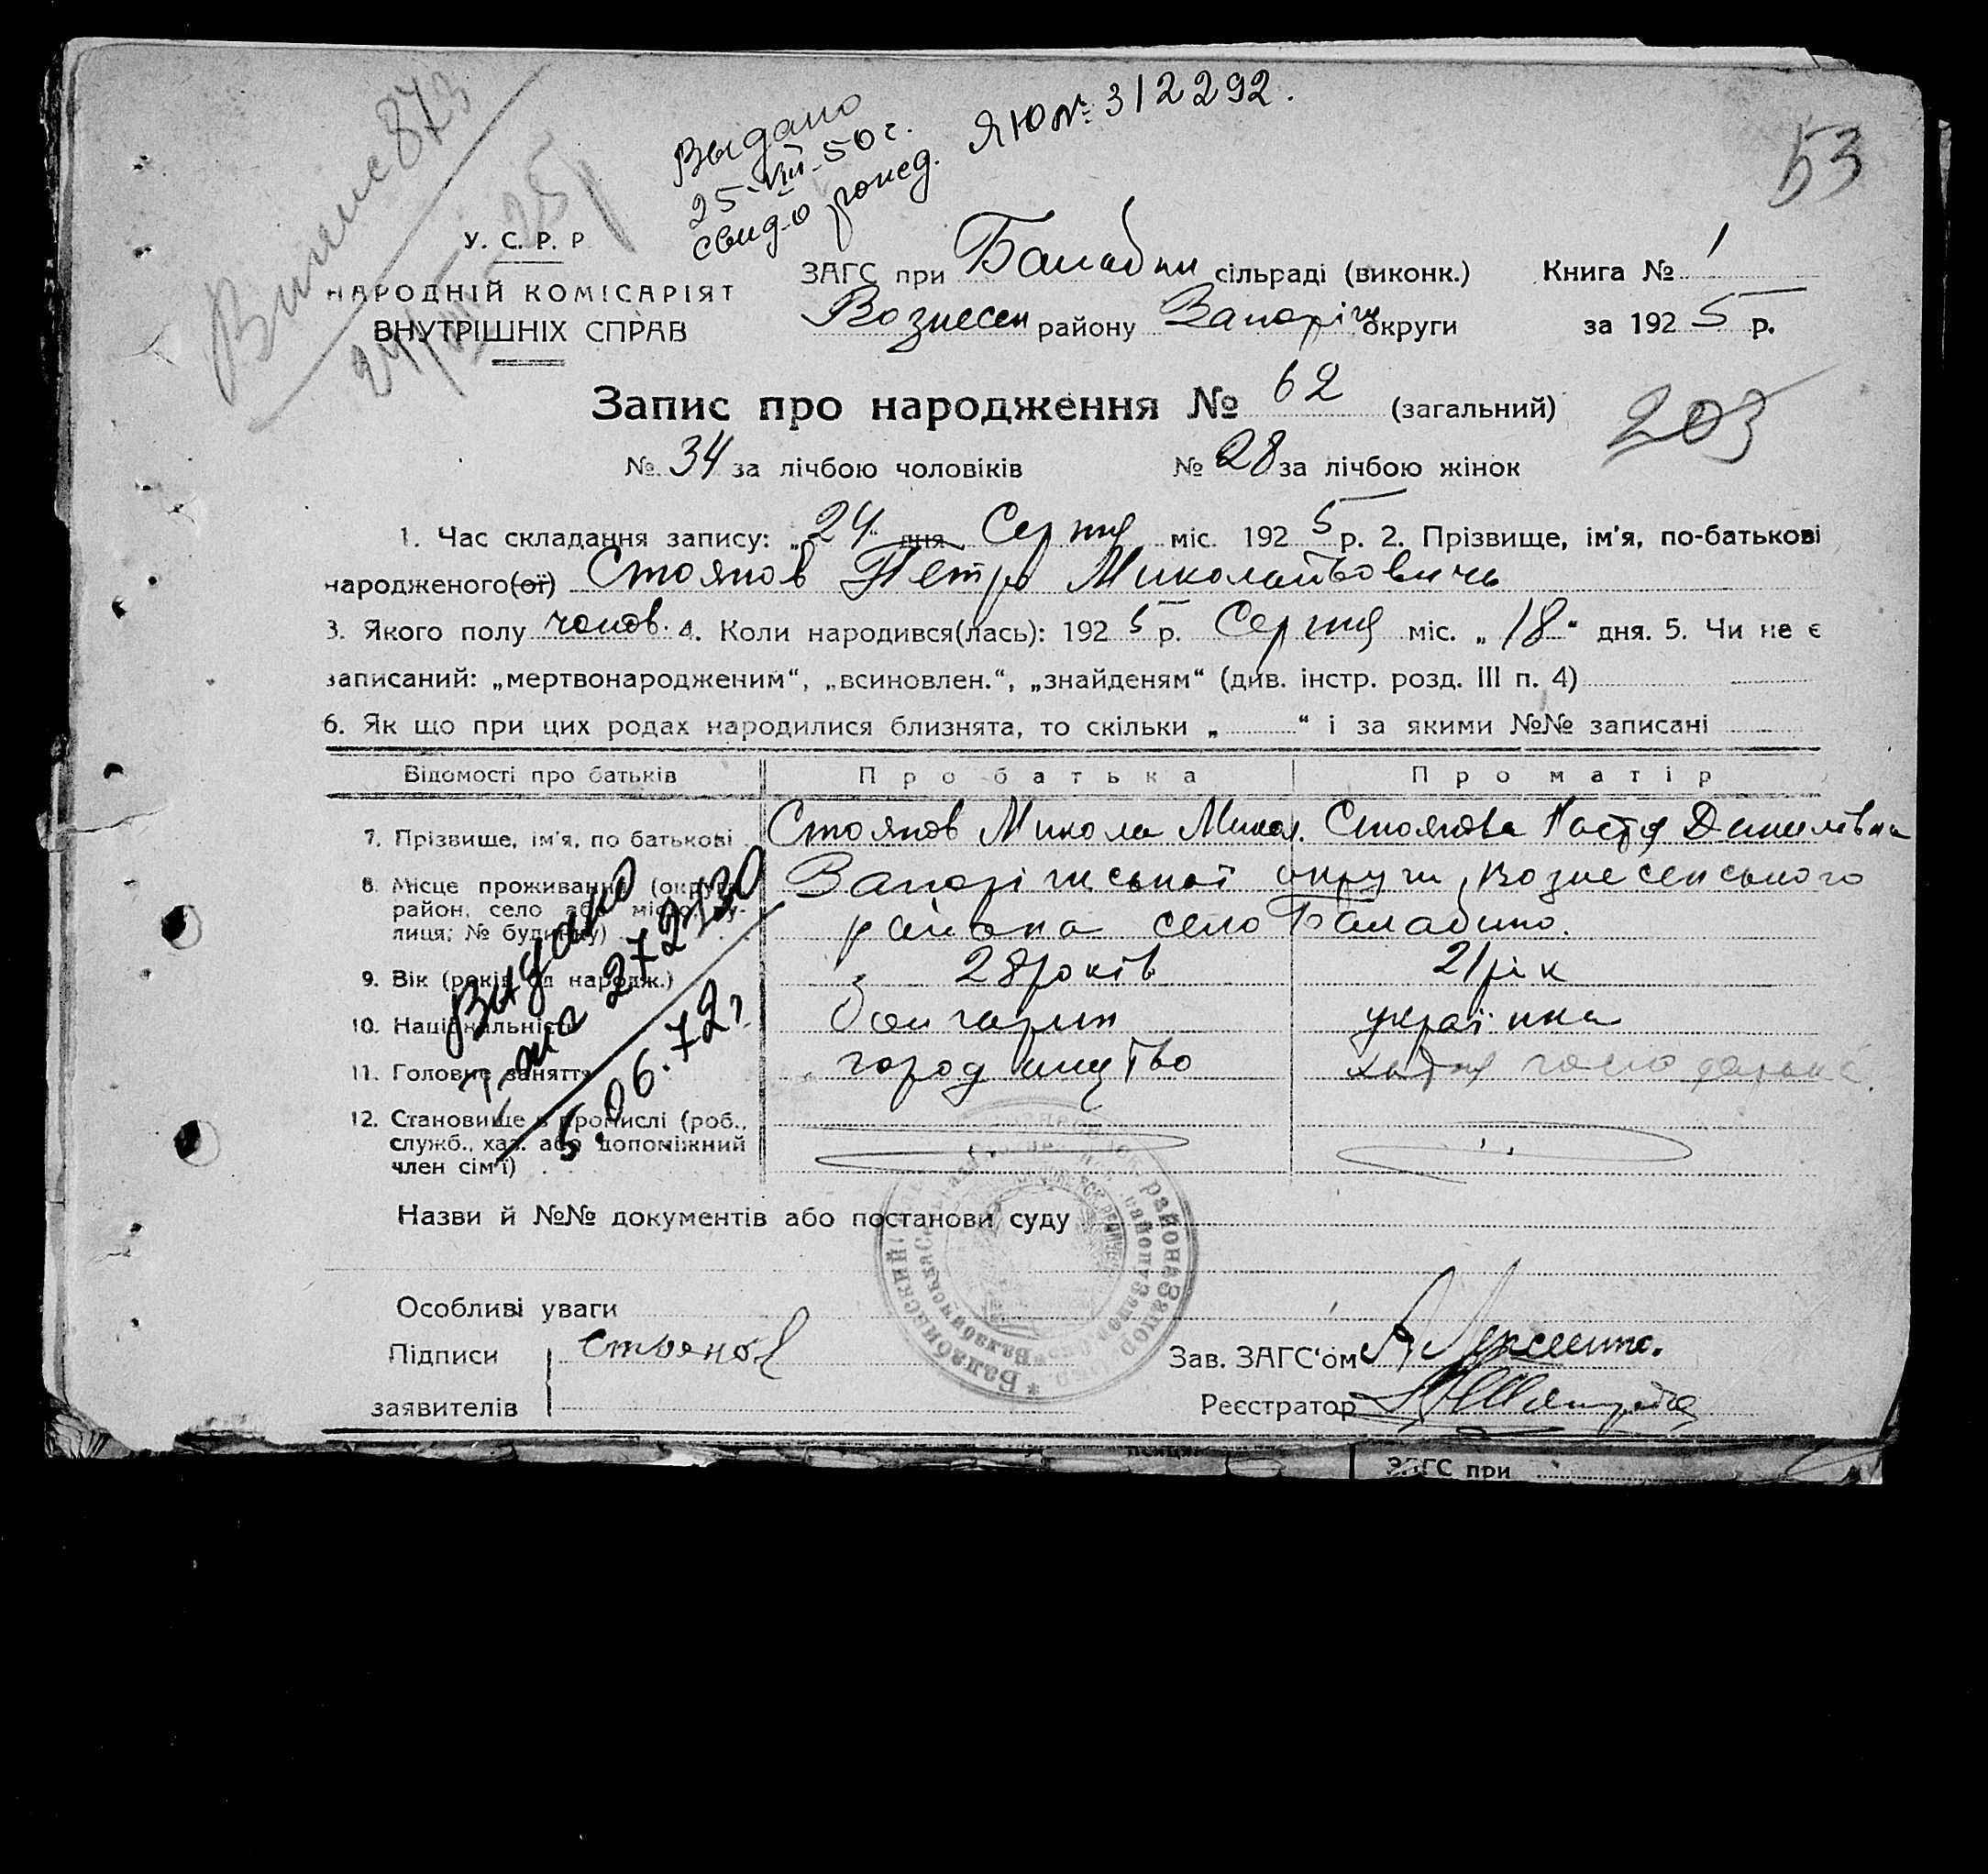 53
Выдано
25-VIII-50 г.
свид-о рожд. ЯЮ № 312292.
У. С. Р. Р
НАРОДНІЙ КОМІСАРІЯТ
ВНУТРІШНІХ СПРАВ
ЗАГС при Балабин сільраді (виконк.) Книга № 1
Вознесен району Запоріж округи за 1925 р.
Запис про народження № 62 (загальний)
203
№ 34 за лічбою чоловіків № 28 за лічбою жінок
1. Час складання запису: „24" дня Серпня міс. 1925 р. 2. Прізвище, ім'я, по-батькові
народженого(ої) Стоянов Петро Миколайовичь
3. Якого полу чолов. 4. Коли народився(лась): 1925 р. Серпня міс. „18" дня. 5. Чи не є
записаний: „мертвонародженим", „всиновлен.", „знайденям" (див. інстр. розд. III п. 4)
6. Як що при цих родах народилися близнята, то скільки „ " і за якими №№ записані
Відомості про батьків Про батька Про матір
7. Прізвище, ім'я, по батькові Стоянов Микола Микол. Стоянова Настя Данилівна
8. Місце проживання (округа, район, село або місто, вулиця; № будинку) Запоріжської округи, Вознесенського
района село Балабино.
9. Вік (років од народж.) 28 років 21 рік
10. Національність болгарин українка
11. Головне заняття городництво хатня господарька
12. Становище в промислі (роб., служб., хаз. або допоміжний член сім'ї)
Выдано
272730
5.06.72 г
Назви й №№ документів або постанови суду
Особливі уваги
Підписи Стоянов Зав. ЗАГС'ом
заявителів Реєстратор
ЗАГС при